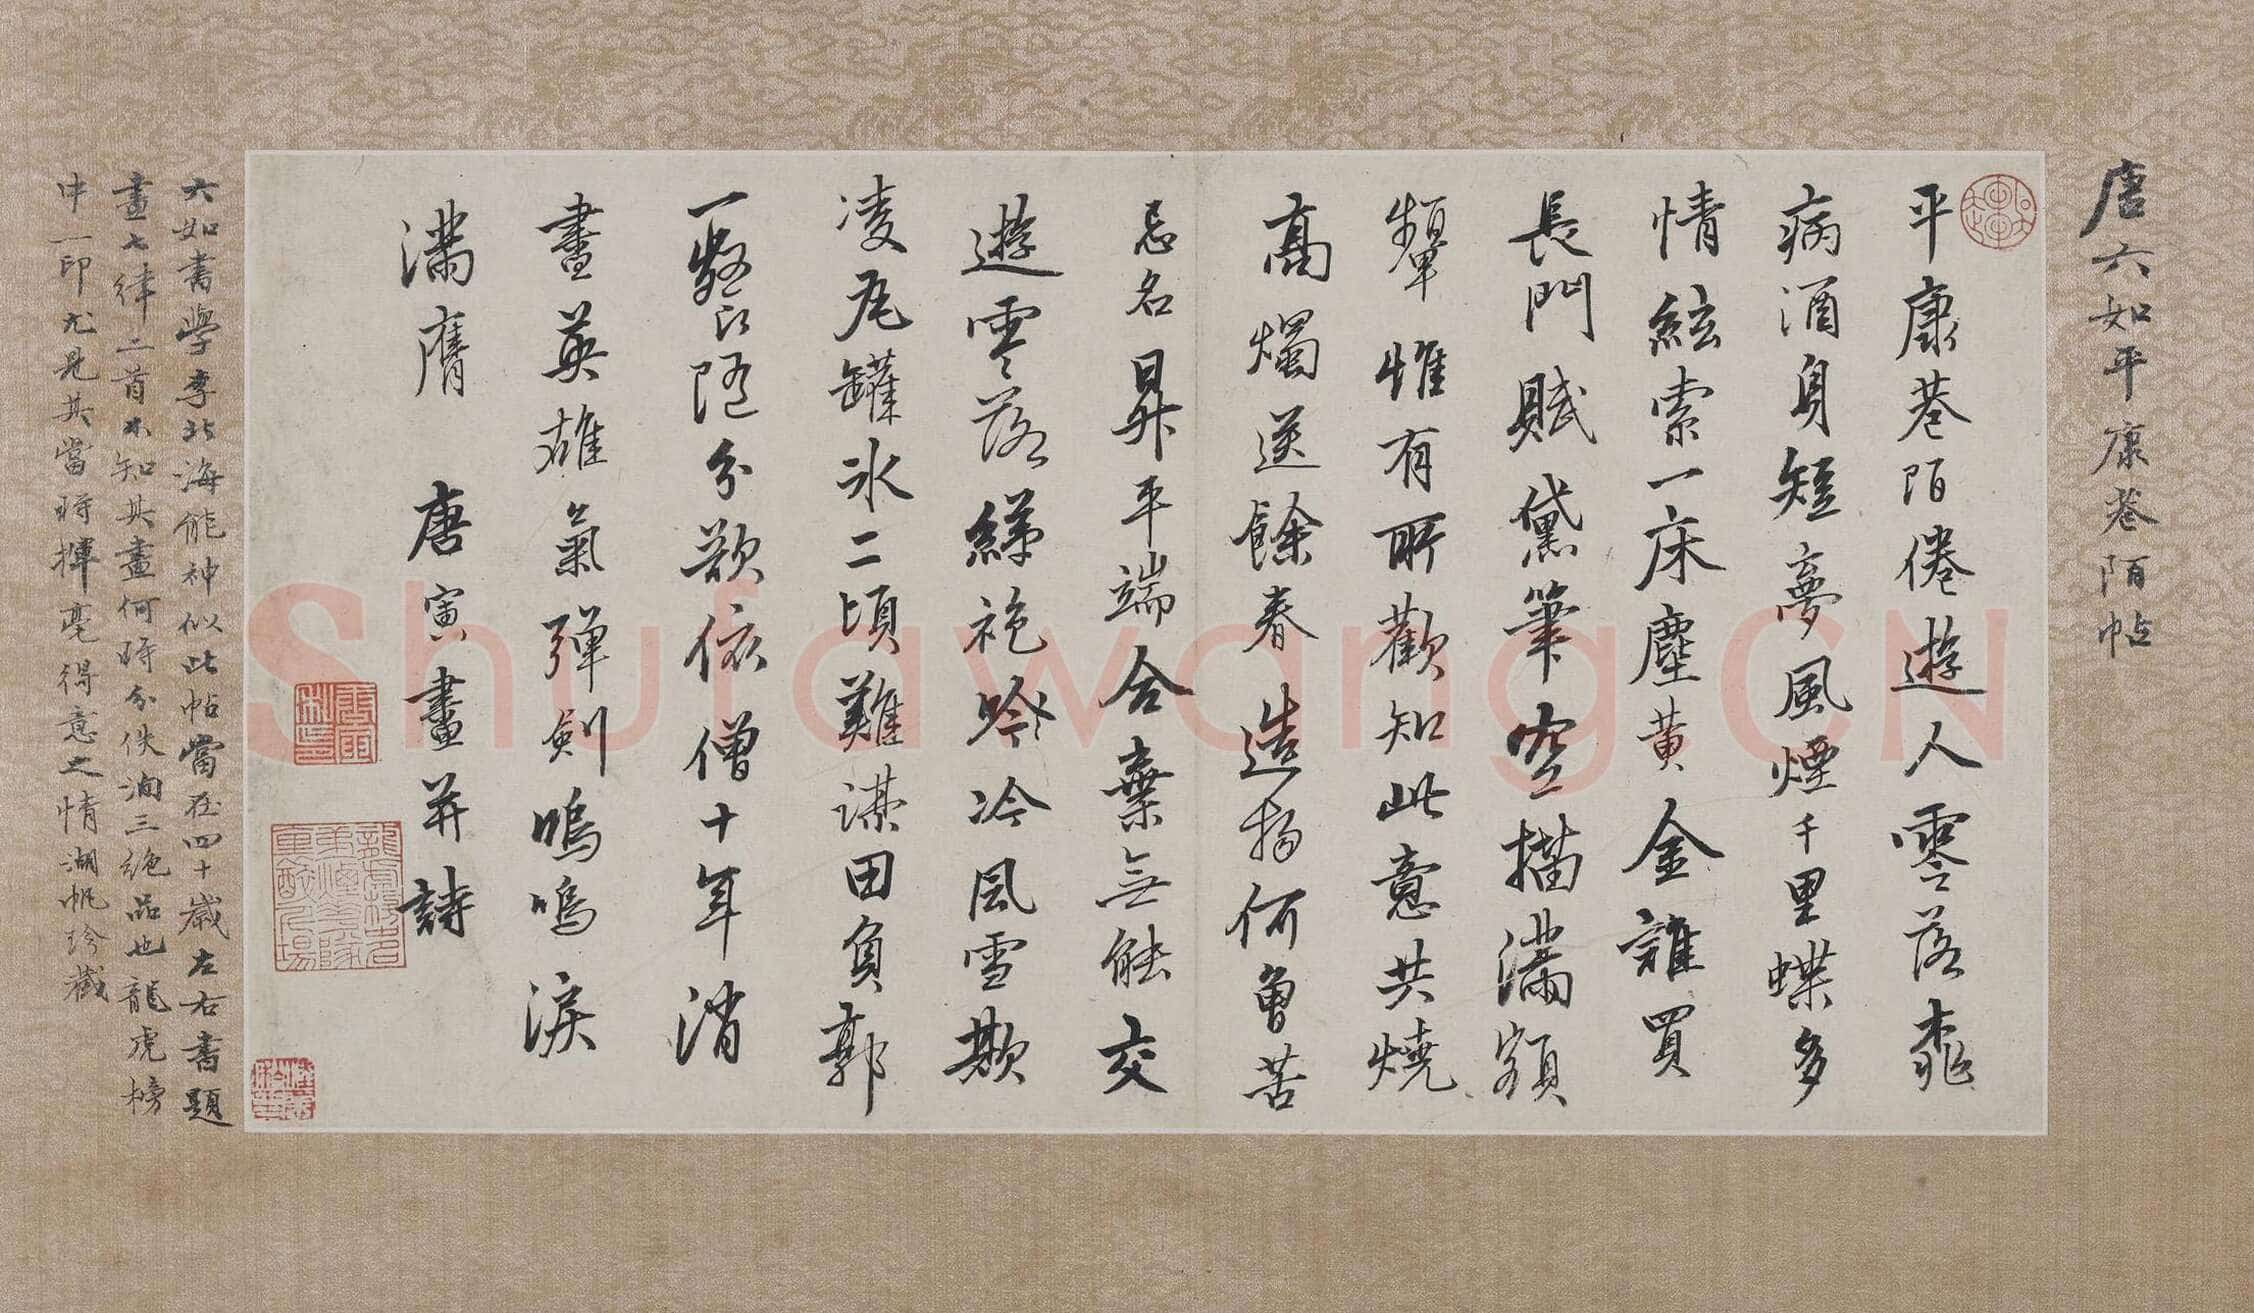 唐六如平康巷陌帖
平康巷陌倦遊人零落桃
病酒身短夢風煙千里蝶多
情絃索一床塵黃金誰買
長門賦黛筆空描滿額
顰惟有所歡知此意共燒
高燭送餘春 造物何曾苦
忌名昇平端合棄無能交
遊零落綈袍吟冷風雪欺
凌瓦罐冰二頃難謀田負郭
一餐隨分欲依僧十年消
畫英雄氣彈劍嗚嗚淚
滿膺 唐寅畫并詩
六如書學李北海能神似此帖當在四十歲左右書題
畫七律二首不知其畫何時分佚洵三絕品也龍虎榜
中一印尤見其當時揮毫得意之情湖帆珍藏
Shufawang.CN